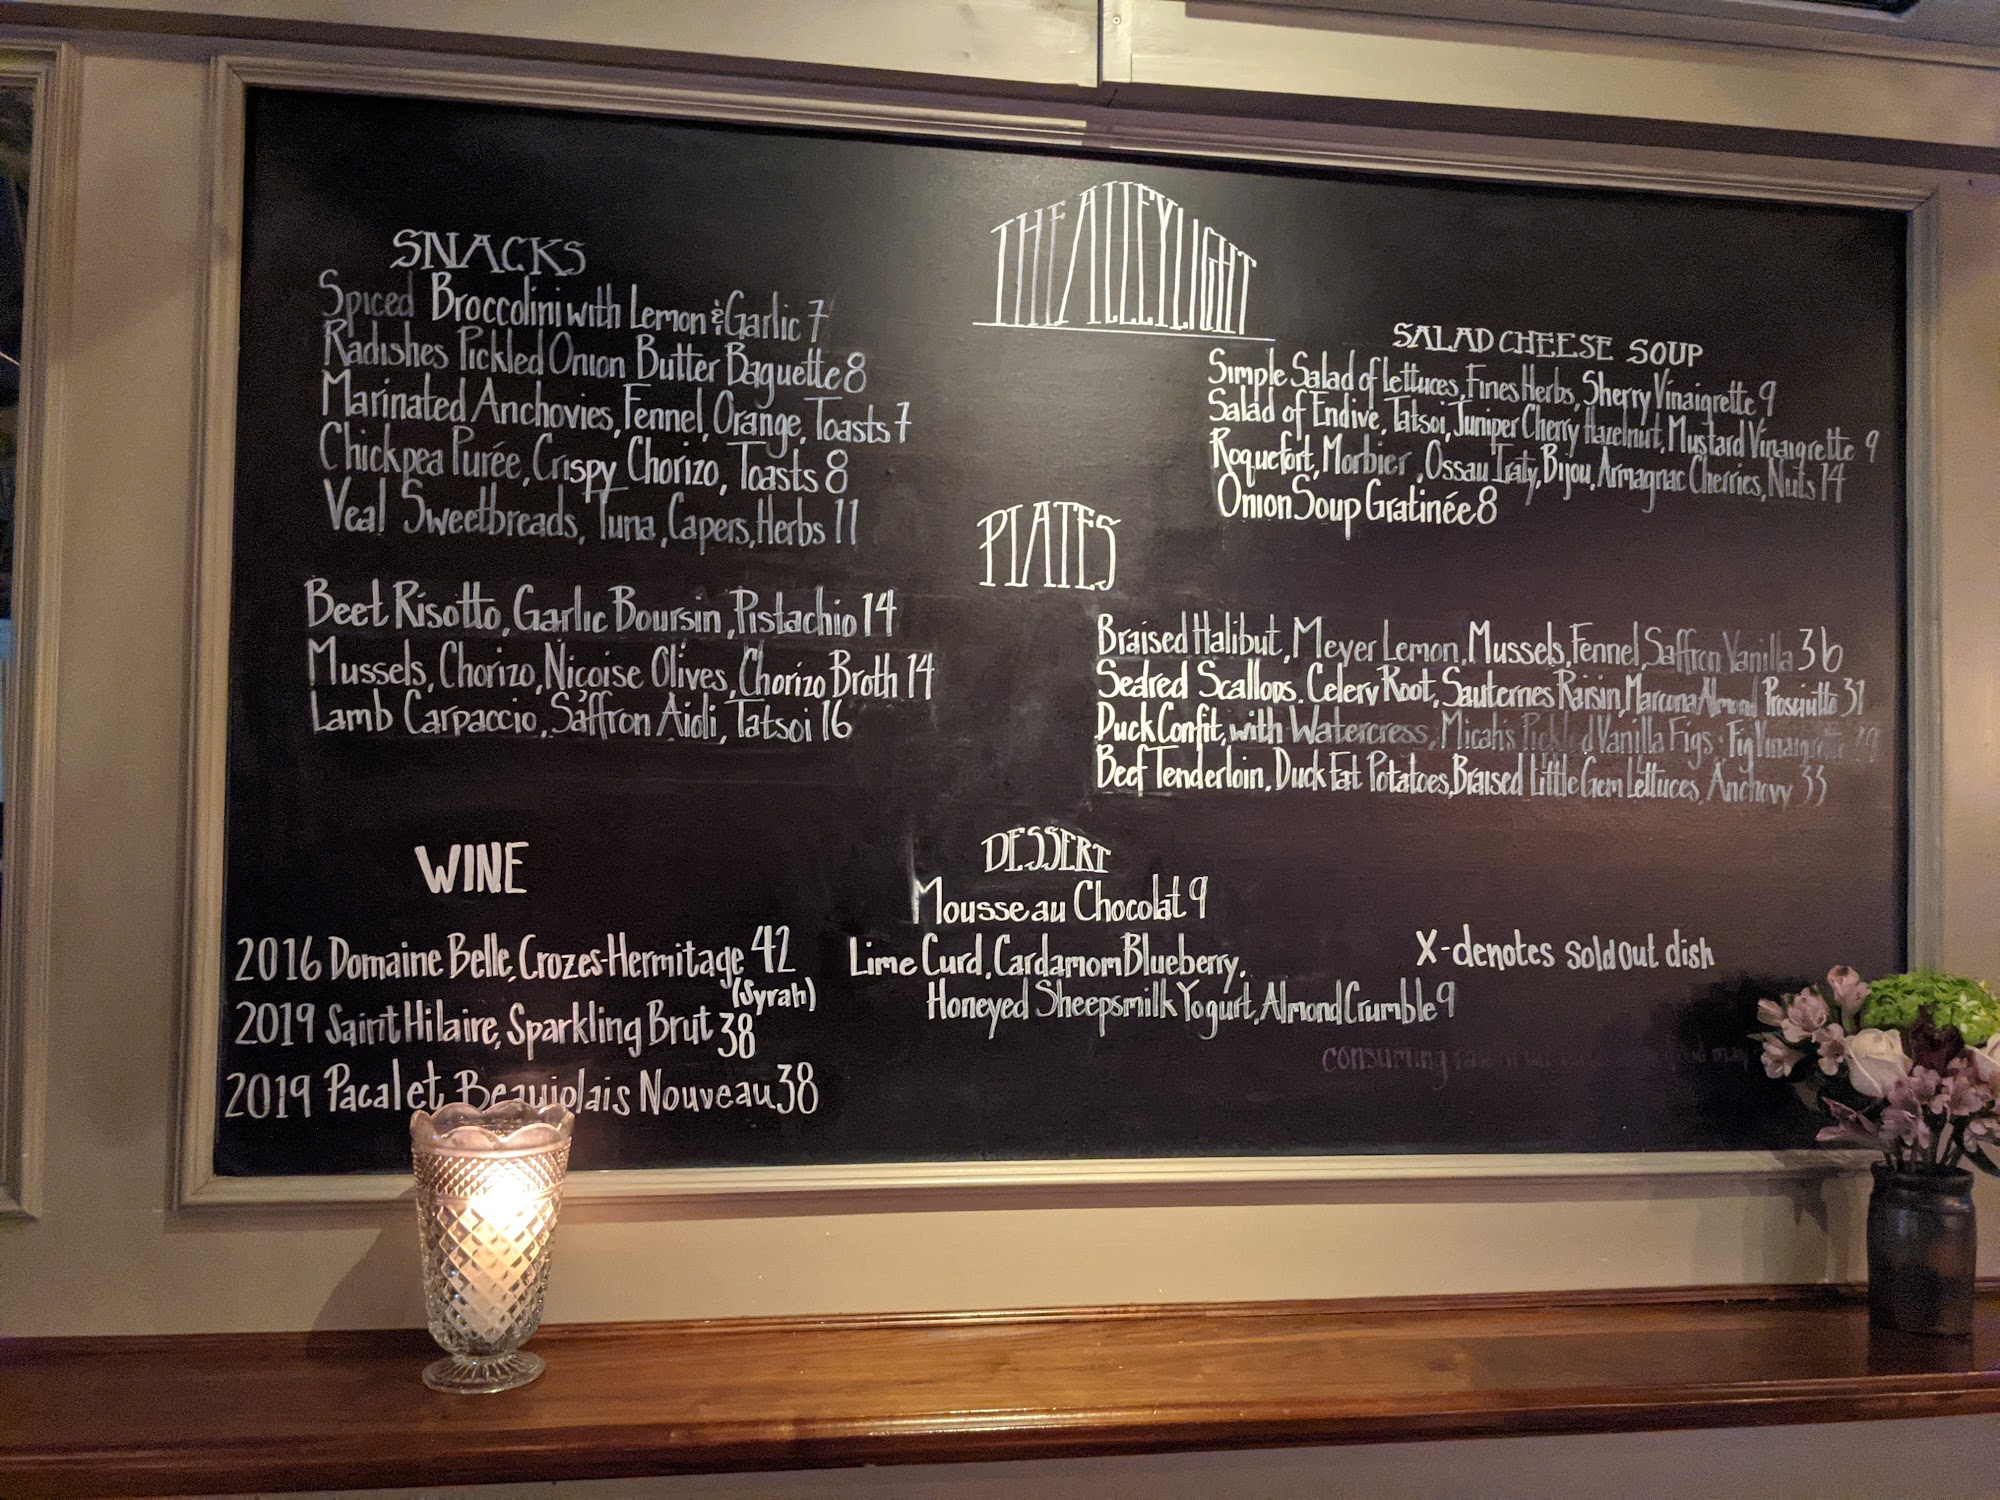 THE ALLEY LIGHT
SNACKS
Spiced Broccolini with Lemon & Garlic 7
Radishes Pickled Onion Butter Baguette 8
Marinated Anchovies, Fennel, Orange, Toasts 7
Chickpea Purée, Crispy Chorizo, Toasts 8
Veal Sweetbreads, Tuna, Capers, Herbs 11
SALAD CHEESE SOUP
Simple Salad of Lettuces, Fines Herbs, Sherry Vinaigrette 9
Salad of Endive, Tatsoi, Juniper Cherry Hazelnut, Mustard Vinaigrette 9
Roquefort, Morbier, Ossau Iraty, Bijou, Armagnac Cherries, Nuts 14
Onion Soup Gratinée 8
PLATES
Beet Risotto, Garlic Boursin, Pistachio 14
Mussels, Chorizo, Niçoise Olives, Chorizo Broth 14
Lamb Carpaccio, Saffron Aioli, Tatsoi 16
Braised Halibut, Meyer Lemon, Mussels, Fennel, Saffron Vanilla 36
Seared Scallops, Celery Root, Sauternes Raisin, Marcona Almond Prosciutto 31
Duck Confit, with Watercress, Micah's Pickled Vanilla Figs, Fig Vinaigrette 29
Beef Tenderloin, Duck Fat Potatoes, Braised Little Gem Lettuces, Anchovy 33
WINE
2016 Domaine Belle, Crozes-Hermitage 42
(Syrah)
2019 Saint Hilaire, Sparkling Brut 38
2019 Pacalet Beaujolais Nouveau 38
DESSERT
Mousse au Chocolat 9
Lime Curd, Cardamom Blueberry,
Honeyed Sheepsmilk Yogurt, Almond Crumble 9
X-denotes sold out dish
consuming raw